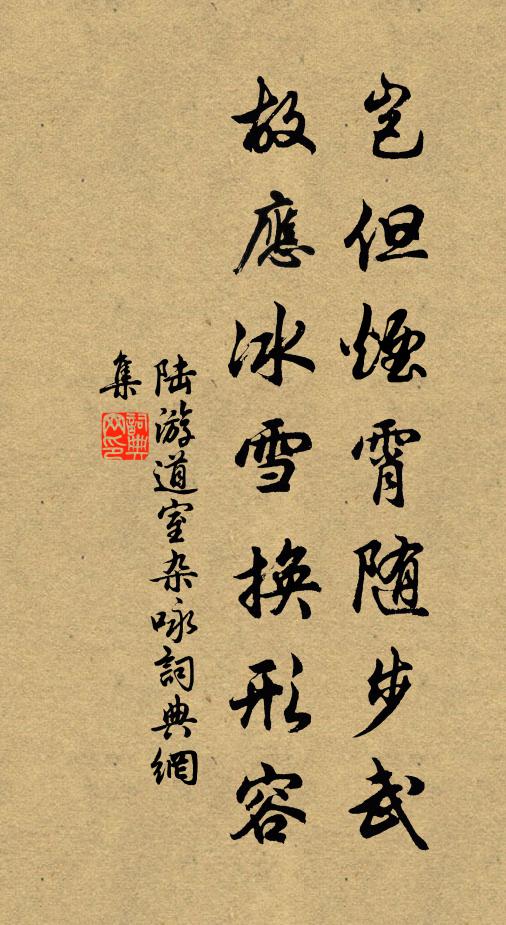 岂但煙霄随步武
故應冰雪換形容
陆游道室杂咏詞典網
集
詞典网印